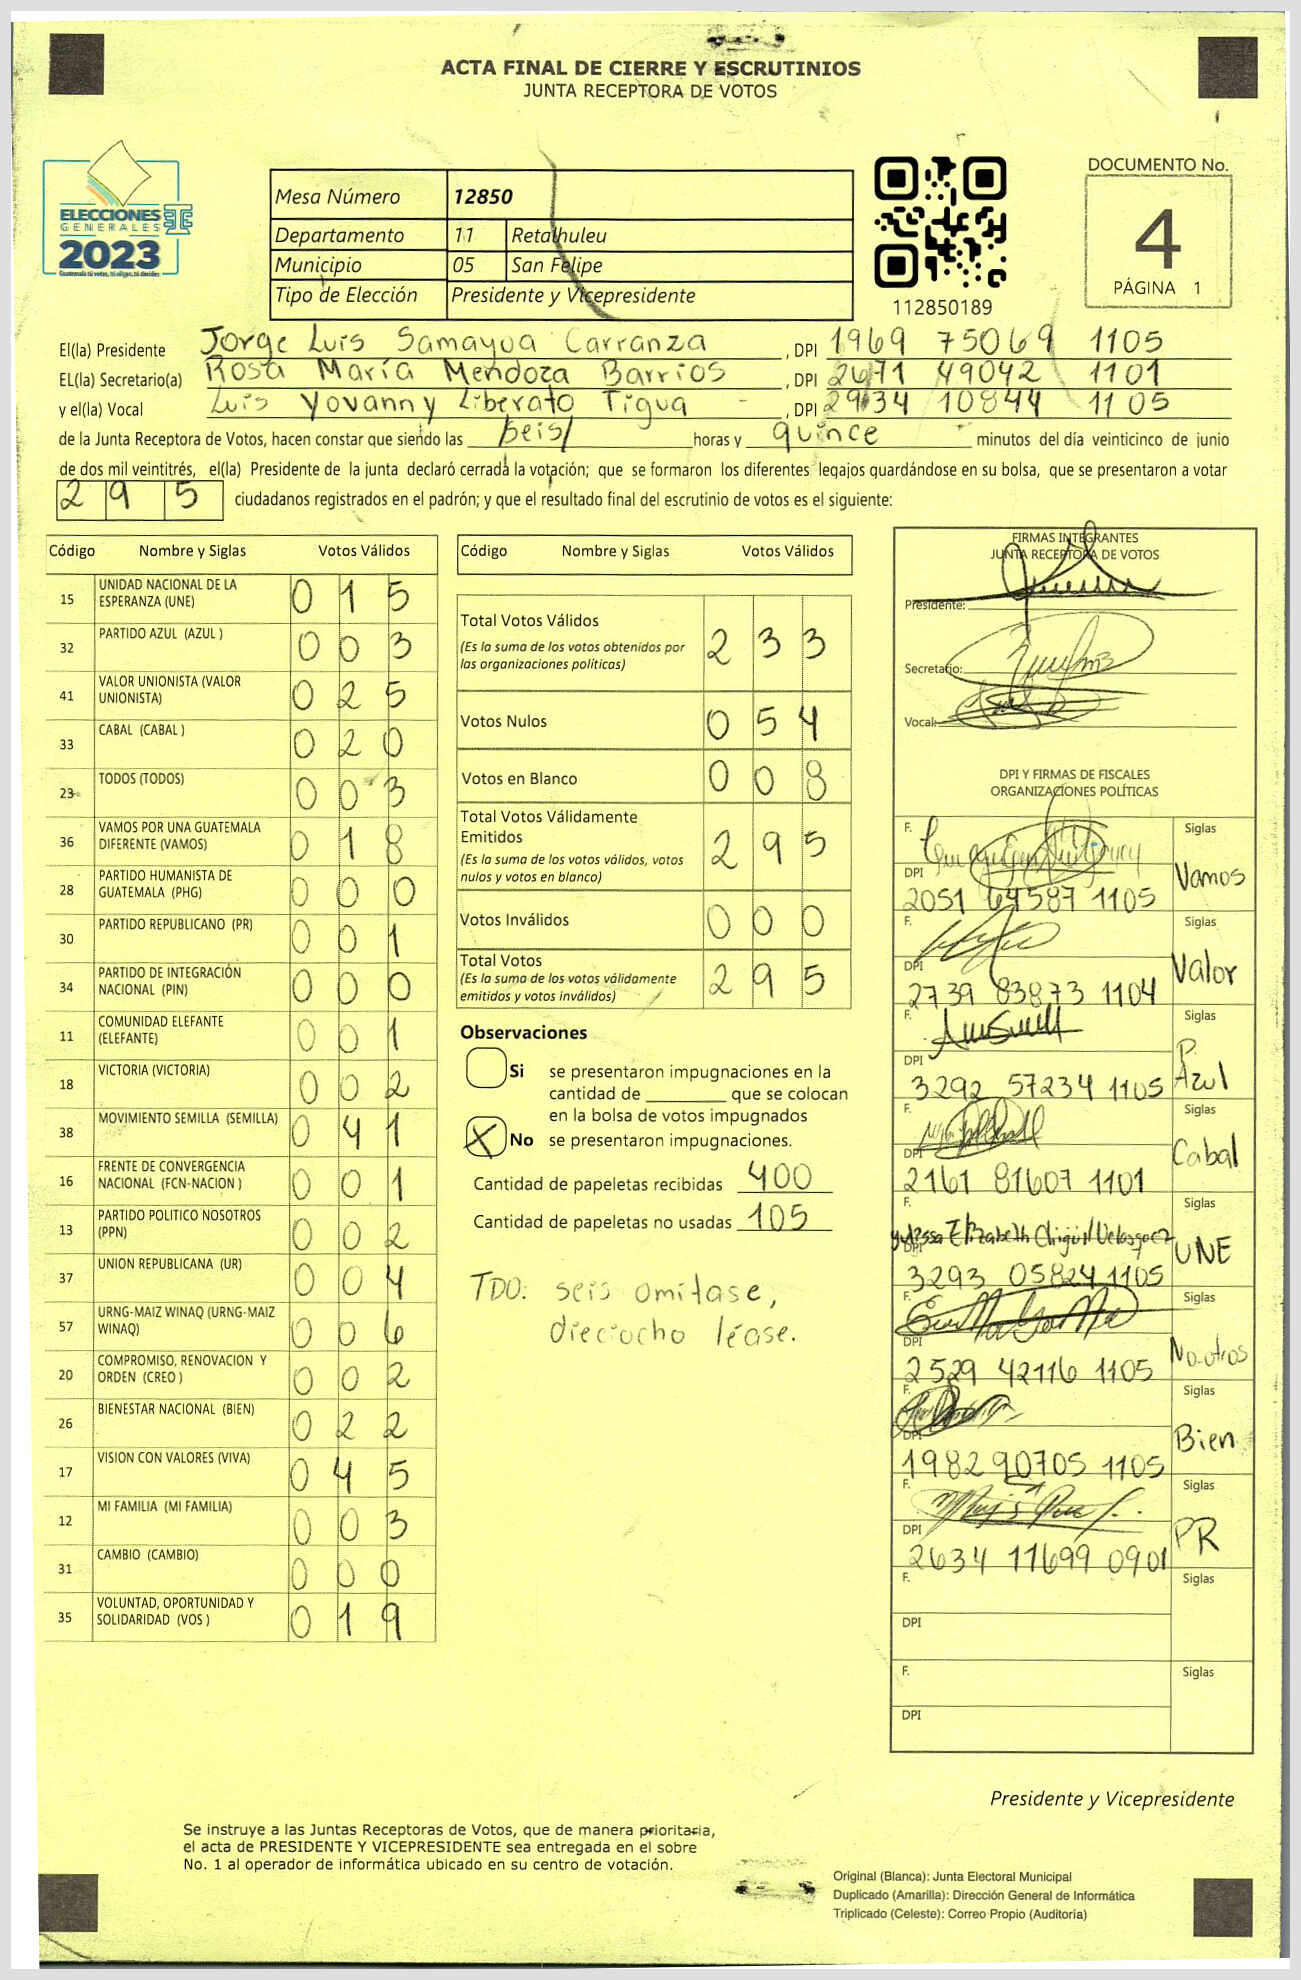 ACTA FINAL DE CIERRE Y ESCRUTINIOS
JUNTA RECEPTORA DE VOTOS
ELECCIONES
GENERALES
2023
Guatemala tú votas, tú eliges, tú decides
Mesa Número 12850
Departamento 11 Retalhuleu
Municipio 05 San Felipe
Tipo de Elección Presidente y Vicepresidente
112850189
DOCUMENTO No.
4
PÁGINA 1
El(la) Presidente Jorge Luis Samayoa Carranza, DPI 1969 75069 1105
EL(la) Secretario(a) Rosa María Mendoza Barrios, DPI 2671 49042 1101
y el(la) Vocal Luis Yovanny Liberato Tigua, DPI 2934 10844 1105
de la Junta Receptora de Votos, hacen constar que siendo las seis horas y quince minutos del día veinticinco de junio
de dos mil veintitrés, el(la) Presidente de la junta declaró cerrada la votación; que se formaron los diferentes legajos guardándose en su bolsa, que se presentaron a votar
295 ciudadanos registrados en el padrón; y que el resultado final del escrutinio de votos es el siguiente:
Código Nombre y Siglas Votos Válidos
15 UNIDAD NACIONAL DE LA ESPERANZA (UNE) 015
32 PARTIDO AZUL (AZUL ) 003
41 VALOR UNIONISTA (VALOR UNIONISTA) 025
33 CABAL (CABAL ) 020
23 TODOS (TODOS) 003
36 VAMOS POR UNA GUATEMALA DIFERENTE (VAMOS) 018
28 PARTIDO HUMANISTA DE GUATEMALA (PHG) 000
30 PARTIDO REPUBLICANO (PR) 001
34 PARTIDO DE INTEGRACIÓN NACIONAL (PIN) 000
11 COMUNIDAD ELEFANTE (ELEFANTE) 001
18 VICTORIA (VICTORIA) 002
38 MOVIMIENTO SEMILLA (SEMILLA) 041
16 FRENTE DE CONVERGENCIA NACIONAL (FCN-NACION ) 001
13 PARTIDO POLITICO NOSOTROS (PPN) 002
37 UNION REPUBLICANA (UR) 004
57 URNG-MAIZ WINAQ (URNG-MAIZ WINAQ) 006
20 COMPROMISO, RENOVACION Y ORDEN (CREO ) 002
26 BIENESTAR NACIONAL (BIEN) 022
17 VISION CON VALORES (VIVA) 045
12 MI FAMILIA (MI FAMILIA) 003
31 CAMBIO (CAMBIO) 000
35 VOLUNTAD, OPORTUNIDAD Y SOLIDARIDAD (VOS ) 019
Código Nombre y Siglas Votos Válidos
Total Votos Válidos 233
(Es la suma de los votos obtenidos por
las organizaciones políticas)
Votos Nulos 054
Votos en Blanco 008
Total Votos Válidamente
Emitidos 295
(Es la suma de los votos válidos, votos
nulos y votos en blanco)
Votos Inválidos 000
Total Votos 295
(Es la suma de los votos válidamente
emitidos y votos inválidos)
Observaciones
Si se presentaron impugnaciones en la
cantidad de ________ que se colocan
en la bolsa de votos impugnados
X No se presentaron impugnaciones.
Cantidad de papeletas recibidas 400
Cantidad de papeletas no usadas 105
TDO: seis omitase,
dieciocho léase.
FIRMAS INTEGRANTES
JUNTA RECEPTORA DE VOTOS
Presidente:
Secretario:
Vocal:
DPI Y FIRMAS DE FISCALES
ORGANIZACIONES POLÍTICAS
F. Siglas
DPI 2051 64587 1105 Vamos
F. Siglas
DPI 2739 83873 1104 Valor
F. Siglas
DPI 3292 57234 1105 P. Azul
F. Siglas
DPI 2161 81607 1101 Cabal
F. Siglas
Elizabeth
DPI 3293 05824 1105 UNE
F. Siglas
DPI 2529 42116 1105 Nosotros
F. Siglas
DPI 1982 90705 1105 Bien
F. Siglas
DPI 2634 11699 0901 PR
F. Siglas
DPI
F. Siglas
DPI
Presidente y Vicepresidente
Se instruye a las Juntas Receptoras de Votos, que de manera prioritaria,
el acta de PRESIDENTE Y VICEPRESIDENTE sea entregada en el sobre
No. 1 al operador de informática ubicado en su centro de votación.
Original (Blanca): Junta Electoral Municipal
Duplicado (Amarilla): Dirección General de Informática
Triplicado (Celeste): Correo Propio (Auditoría)